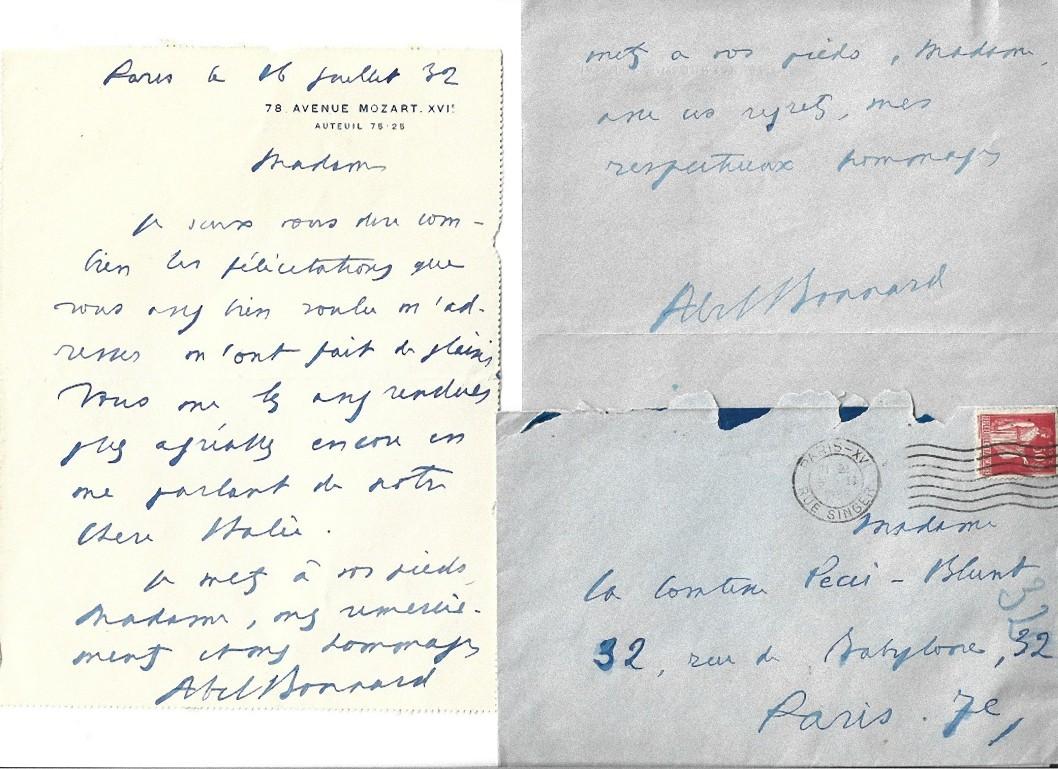 Paris le 16 juillet 32
78. AVENUE MOZART. XVIE
AUTEUIL 75-25
Madame
Je veux vous dire com-
bien les félicitations que
vous avez bien voulu m'ad-
resser m'ont fait de plaisir
Vous me les avez rendues
plus agréables encore en
me parlant de notre
chère Italie.
Je mets à vos pieds,
Madame, mes remercie-
ments et mes hommages
Abel Bonnard
mets a vos pieds, Madame,
avec ces regrets, mes
respectueux hommages
Abel Bonnard
PARIS-XVI
RUE SINGER
Madame
la Comtesse Pecci-Blunt
32
32, rue de Babylone, 32
Paris. 7e,